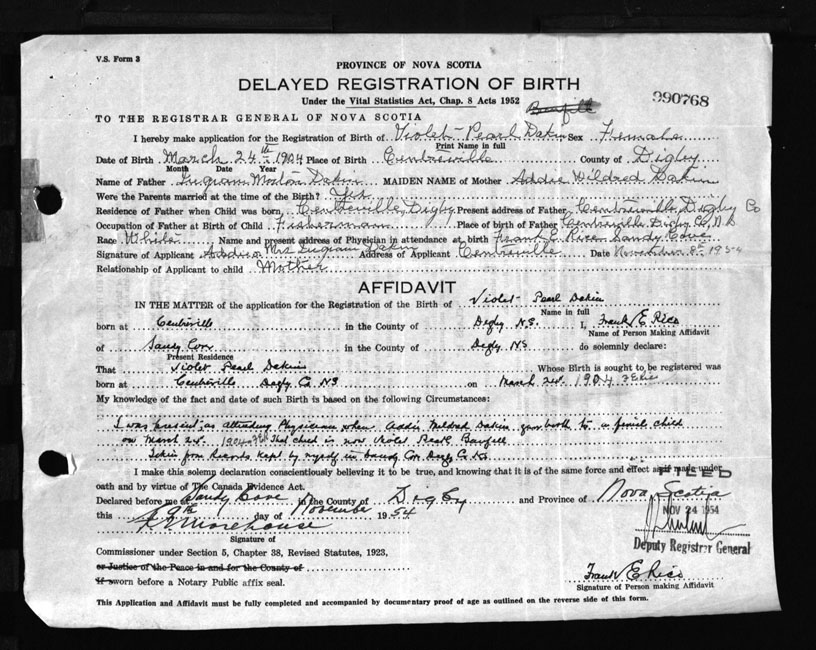 V.S. Form 3
PROVINCE OF NOVA SCOTIA
DELAYED REGISTRATION OF BIRTH
Under the Vital Statistics Act, Chap. 8 Acts 1952
990768
TO THE REGISTRAR GENERAL OF NOVA SCOTIA
I hereby make application for the Registration of Birth of Violet Pearl Dakin Sex Female
Print Name in full
Date of Birth March 24th 1904 Place of Birth Centreville County of Digby
Month Date Year
Name of Father Ingram Morton Dakin MAIDEN NAME of Mother Addie Mildred Dakin
Were the Parents married at the time of Birth? Yes
Residence of Father when Child was born Centreville, Digby Present address of Father Centreville, Digby Co
Occupation of Father at Birth of Child Fisherman Place of birth of Father Centreville Digby Co, N S
Race White Name and present address of Physician in attendance at birth Frank E. Rice Sandy Cove
Signature of Applicant Mrs Ingram Dakin Address of Applicant Centreville Date November 8 1954
Relationship of Applicant to child Mother
AFFIDAVIT
IN THE MATTER of the application for the Registration of the Birth of Violet Pearl Dakin
Name in full
born at Centreville in the County of Digby N.S. I, Frank E Rice
Name of Person Making Affidavit
of Sandy Cove in the County of Digby NS do solemnly declare:
Present Residence
That Violet Pearl Dakin Whose Birth is sought to be registered was
born at Centreville Digby Co NS on March 24. 1904 F E Rice
My knowledge of the fact and date of such Birth is based on the following Circumstances:
I was present as attending Physician when Addie Mildred Dakin gave birth to a female child
on March 24. 1904 That child is now Violet Pearl
Taken from Records kept by myself in Sandy Cove Digby Co NS
I make this solemn declaration conscientiously believing it to be true, and knowing that it is of the same force and effect as if made under
oath and by virtue of The Canada Evidence Act.
FILED
Declared before me at Sandy Cove in the County of Digby and Province of Nova Scotia
this 9th day of November 1954
NOV 24 1954
Morehouse
Deputy Registrar General
Signature of
Commissioner under Section 5, Chapter 38, Revised Statutes, 1923,
or Justice of the Peace in and for the County of
If sworn before a Notary Public affix seal.
Frank E Rice
Signature of Person making Affidavit
This Application and Affidavit must be fully completed and accompanied by documentary proof of age as outlined on the reverse side of this form.